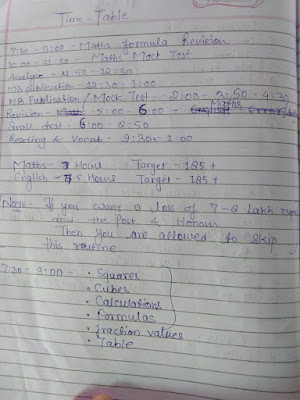 Time-Table
7:30 - 9:00 - Maths formula Revision
10:00 - 11:50 - Maths Mock Test
Analysis - 11:50 - 12:30
MB publication - 12:30 - 1:00
MB Publication / Mock Test - 2:00 - 3:50 - 4:30
Revision - 5:00 - 6:00 - Maths
6:00 - 8:50
Reading & Vocab - 9:30 - 1:00
Maths - 7 Hours Target - 185 +
English - 5 Hours Target - 185 +
Note - If you want a loss of 7-8 Lakh
and the Post & Honour
Then You are allowed to skip
this routine
7:30 - 9:00 - • Squares
• Cubes
• Calculations
• Formulas
• fraction values
• Table